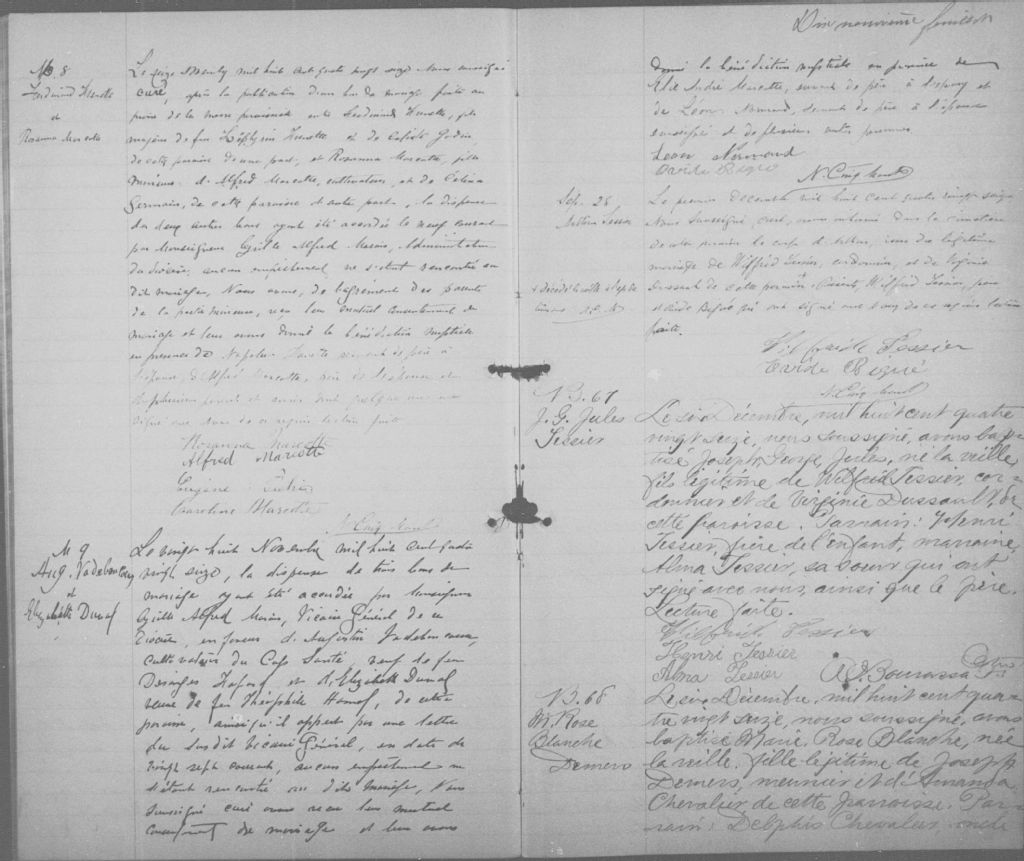 M 8
Ferdinand
et
Rosanna Marcotte
Le seize Novembre mil huit cent quatre vingt seize Nous soussigné
curé, après la publication d'un ban de mariage faite au
prône de la messe paroissiale entre Ferdinand fils
majeur de feu et de
de cette paroisse d'une part, et Rosanna Marcotte, fille
mineure d'Alfred Marcotte, cultivateur, et de Célina
Germain, de cette paroisse d'autre part, la dispense
des deux autres bans ayant été accordée le neuf courant
par Monseigneur Cyrille Alfred Marois, Administrateur
du diocèse, aucun empêchement ne s'étant rencontré au
dit mariage, Nous avons, de l'agrément des parents
de la partie mineure, reçu leur mutuel consentement de
mariage et leur avons donné la bénédiction nuptiale
en présence de Napoléon servant de père à
l'époux, d'Alfred Marcotte, père de l'épouse et
de plusieurs parents et amis dont quelques uns ont
signé avec nous lecture faite
Rosanna Marcotte
Alfred Marcotte
Eugène
Caroline Marcotte
M 9
Aug. Vadeboncoeur
et
Elizabeth Duval
Le vingt huit Novembre mil huit cent quatre
vingt seize, la dispense de trois bans de
mariage ayant été accordée par Monseigneur
Cyrille Alfred Marois, Vicaire Général de ce
Diocèse, en faveur d'Augustin Vadeboncoeur,
cultivateur du Cap Santé, veuf de feu
Desanges et d'Elizabeth Duval
veuve de feu Théophile Hamel, de cette
paroisse, ainsi qu'il appert par une lettre
du susdit Vicaire Général, en date du
vingt sept courant, aucun empêchement ne
s'étant rencontré au dit mariage, Nous
soussigné curé avons reçu leur mutuel
consentement de mariage et leur avons
Dix neuvième feuillet
donné la bénédiction nuptiale en présence de
André Marcotte, servant de père à l'époux et
de Léon Normand, servant de père à l'épouse
soussigné et de plusieurs autres personnes
Léon Normand
Davide Bigué
Sep. 28
Tessier
Le premier décembre mil huit cent quatre vingt seize
Nous soussigné, curé, avons inhumé dans le cimetière
de cette paroisse le corps d'Arthur, issu du légitime
mariage de Wilfrid Tessier, cordonnier, et de Virginie
Dussault de cette paroisse. Présents, Wilfrid Tessier, père
et Davide Bigué qui ont signé avec nous lecture
faite.
Wilfrid Tessier
Davide Bigué
B. 67
J. G. Jules
Tessier
Le six Décembre, mil huit cent quatre
vingt seize, nous soussigné, avons bap-
tisé Joseph, George, Jules, né la veille,
fils légitime de Wilfrid Tessier, cor-
donnier et de Virginie Dussault, de
cette paroisse. Parrain: Henri
Tessier, frère de l'enfant, marraine,
Alma Tessier, sa soeur qui ont
signé avec nous, ainsi que le père.
Lecture faite.
Wilfrid Tessier
Henri Tessier
Alma Tessier
Bourassa Ptre
B. 68
M. Rose
Blanche
Demers
Le six Décembre, mil huit cent qua-
tre vingt seize, nous soussigné, avons
baptisé Marie, Rose Blanche, née
la veille, fille légitime de Joseph
Demers, meunier et d'Amanda
Chevalier de cette paroisse. Par-
rain: Delphis Chevalier, oncle